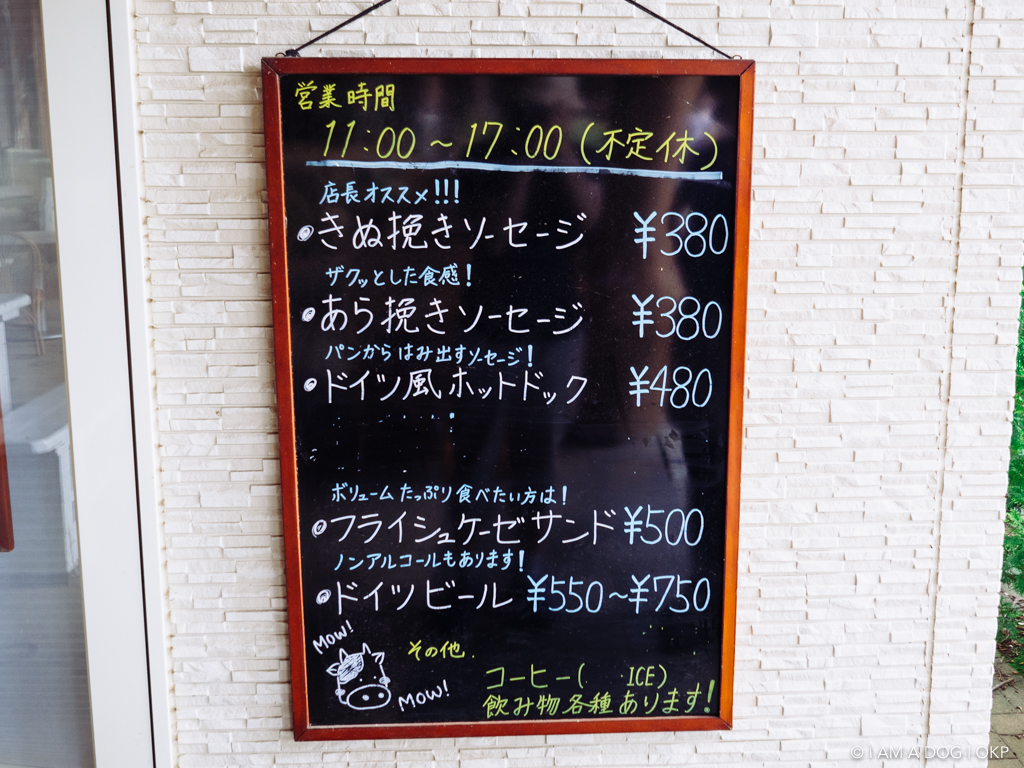 営業時間
11:00～17:00(不定休)
店長オススメ!!!
きぬ挽きソーセージ ¥380
ザクッとした食感!
あら挽きソーセージ ¥380
パンからはみ出すソーセージ!
ドイツ風ホットドック ¥480
ボリュームたっぷり食べたい方は!
フライシュケーゼサンド ¥500
ノンアルコールもあります!
ドイツビール ¥550～¥750
MOW!
その他
MOW!
コーヒー( ICE)
飲み物各種あります!
© I AM A DOG | OKP